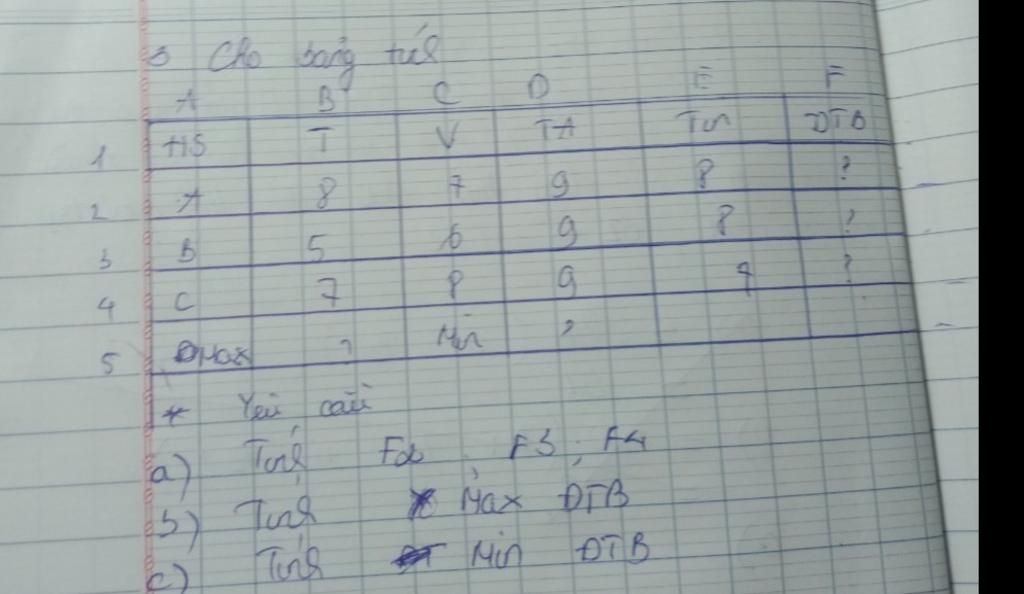 3 Cho bảng tính
A B C D E F
1 HS T V TA Tin ĐTB
2 A 8 7 9 8 ?
3 B 5 6 9 8 ?
4 C 7 8 9 9 ?
5 Max ? Min ?
* Yêu cầu
a) Tính F2, F3, F4
b) Tính Max ĐTB
c) Tính Min ĐTB